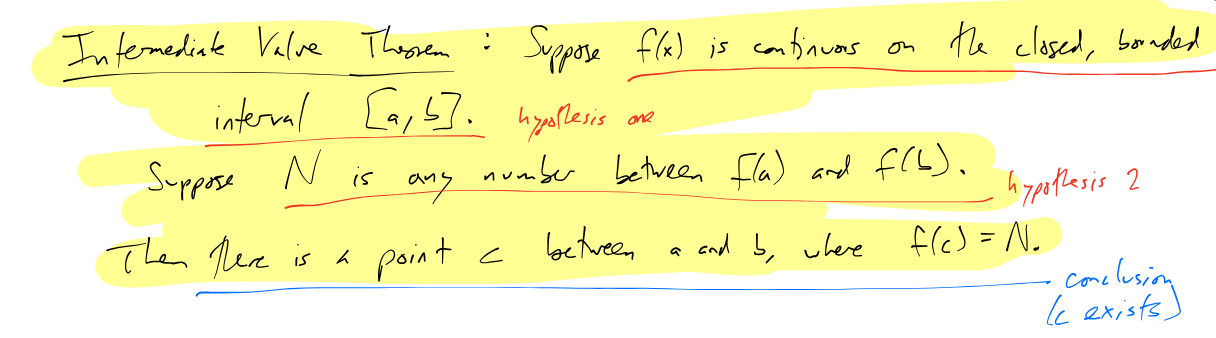 Intermediate Value Theorem : Suppose f(x) is continuous on the closed, bounded
interval [a, b]. hypothesis one
Suppose N is any number between f(a) and f(b). hypothesis 2
Then there is a point c between a and b, where f(c) = N.
conclusion
(c exists)